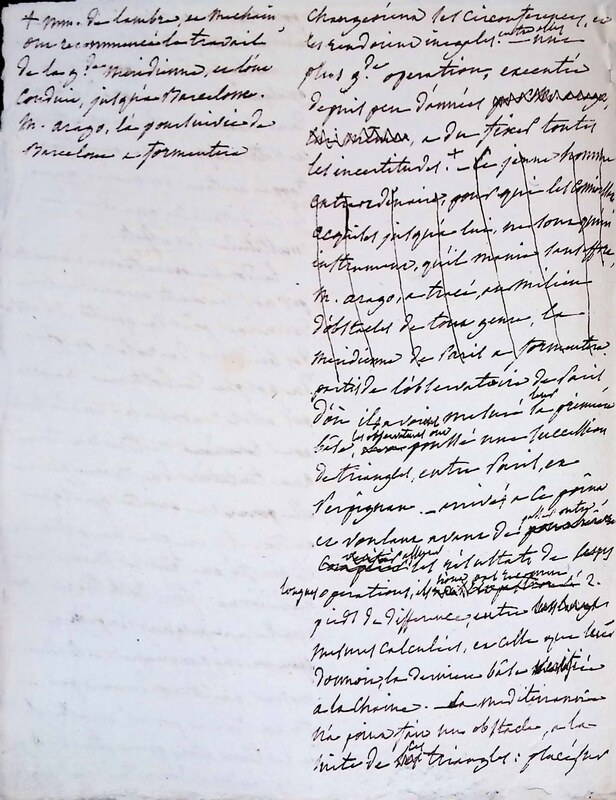 + mm. de lambre, et Mechain
ont recommencé le travail
de la g.de meridienne, et l'ont
conduit, jusqu'a Barcelone.
M. arago, l'a poursuivie de
Barcelone a formentera
changeroient les circonferences, et
les rendroient inegales.
plus g.de operation, executée
depuis peu d'années
a du fixer toutes
les incertitudes. + Ce jeune homme
extraordinaire, pour qui les
acquises jusqu'a lui, ne sont qu'un
instrument, qu'il manie sans effort,
M. arago, a tracé, au milieu
d'obstacles de tout genre, la
meridienne de Paris a formentera
partis de l'observatoire de Paris
d'où ils avoient mesuré la premiere
bâse, les observateurs ont poussé une succession
de triangles, entre Paris, et
Perpignan. — arrivés a ce point
et voulant avant de passer outre,
les resultats de
longues operations, ils n'ont 2.
pieds de difference, entre
mesures calculées, et celle que leur
donnoit, la derniere bâse
a la chaine. — La mediterranée
n'a point fait un obstacle, a la
suite de ces triangles : placés sur